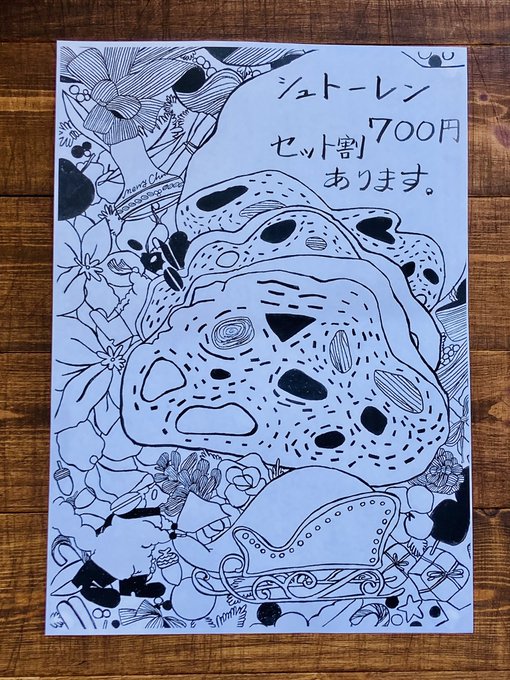 シュトーレン
700円
セット割
あります。
Merry Chri